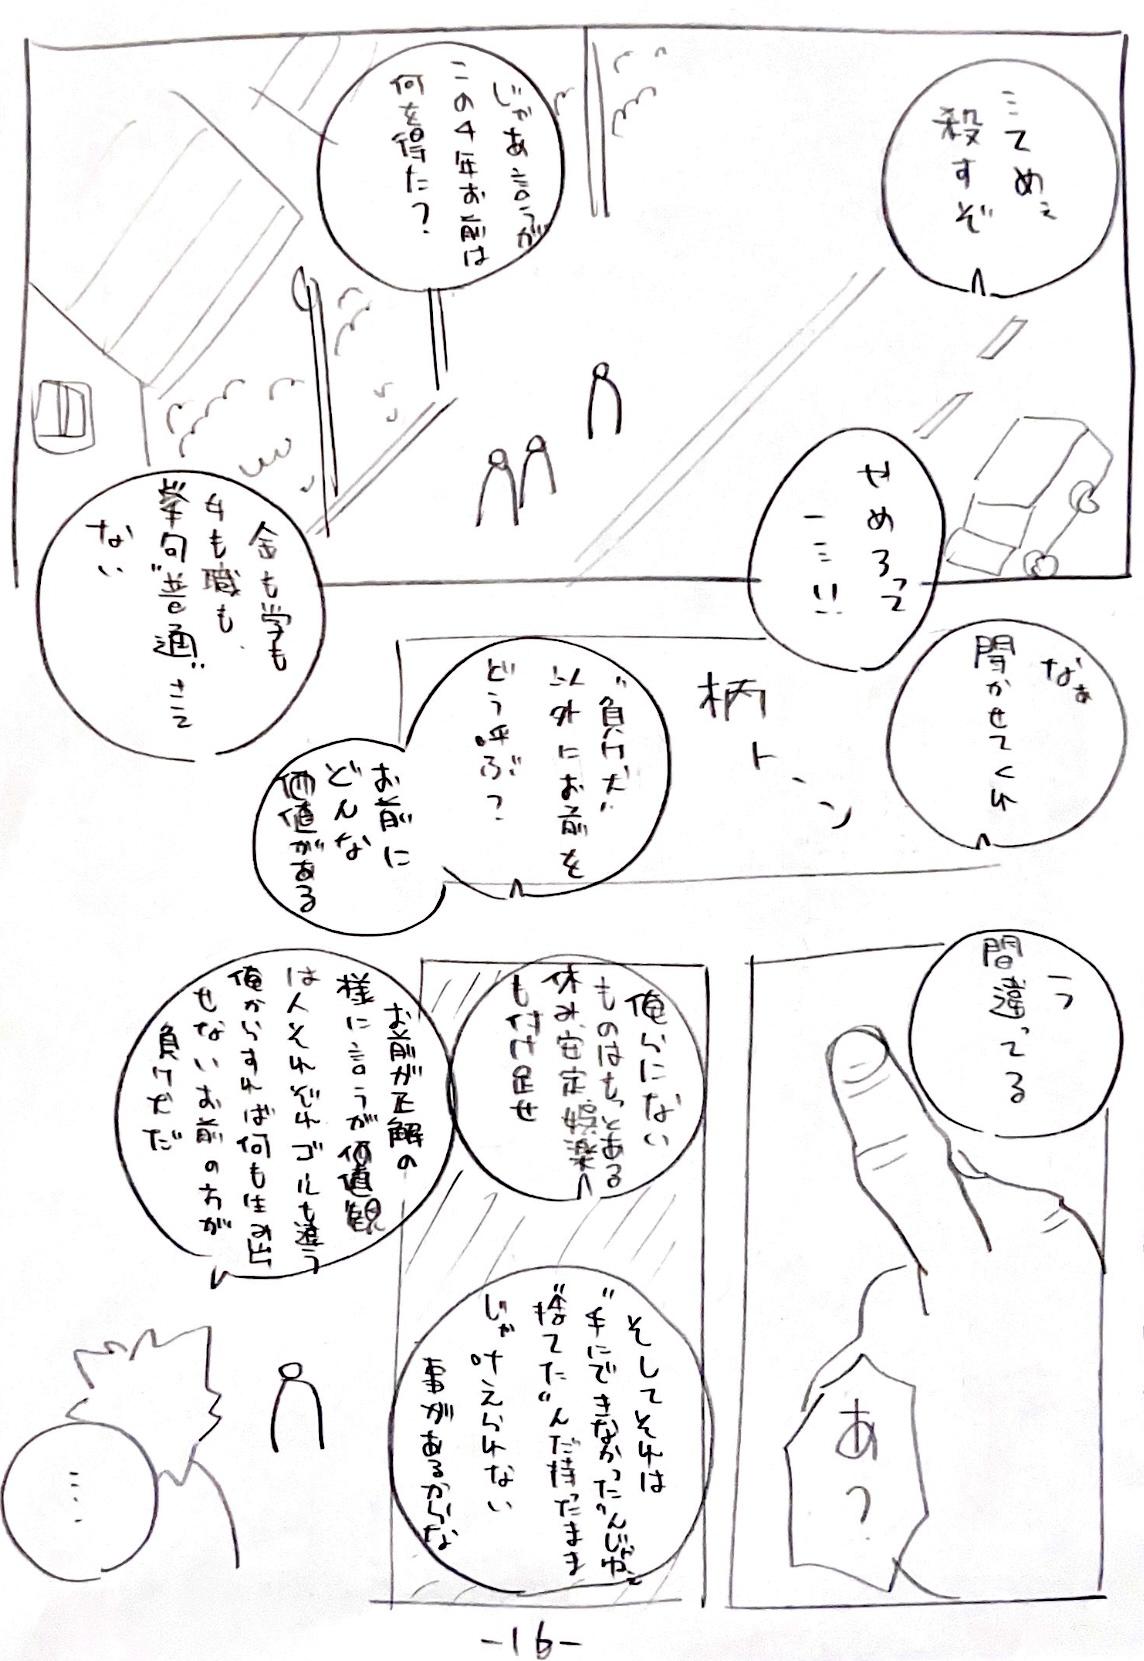 …てめぇ
殺すぞ
じゃあ言うが
この4年お前は
何を得た?
やめろって
ー…!!
金も学も
女も職も
挙句"普通"さえ
ない
なぁ
聞かせてくれ
柄トーン
"負け犬"
以外にお前を
どう呼ぶ?
お前に
どんな
価値がある
う
間違ってる
あ?
俺らにない
ものはもっとある
休み、安定、娯楽
も付け足せ
そしてそれは
"手にできなかった"んじゃねぇ
"捨てた"んだ持ったまま
じゃ叶えられない
事があるからな
お前が正解の
様に言うが価値観
は人それぞれゴールも違う
俺からすれば何も生み出
せないお前の方が
負け犬だ
……
-16-